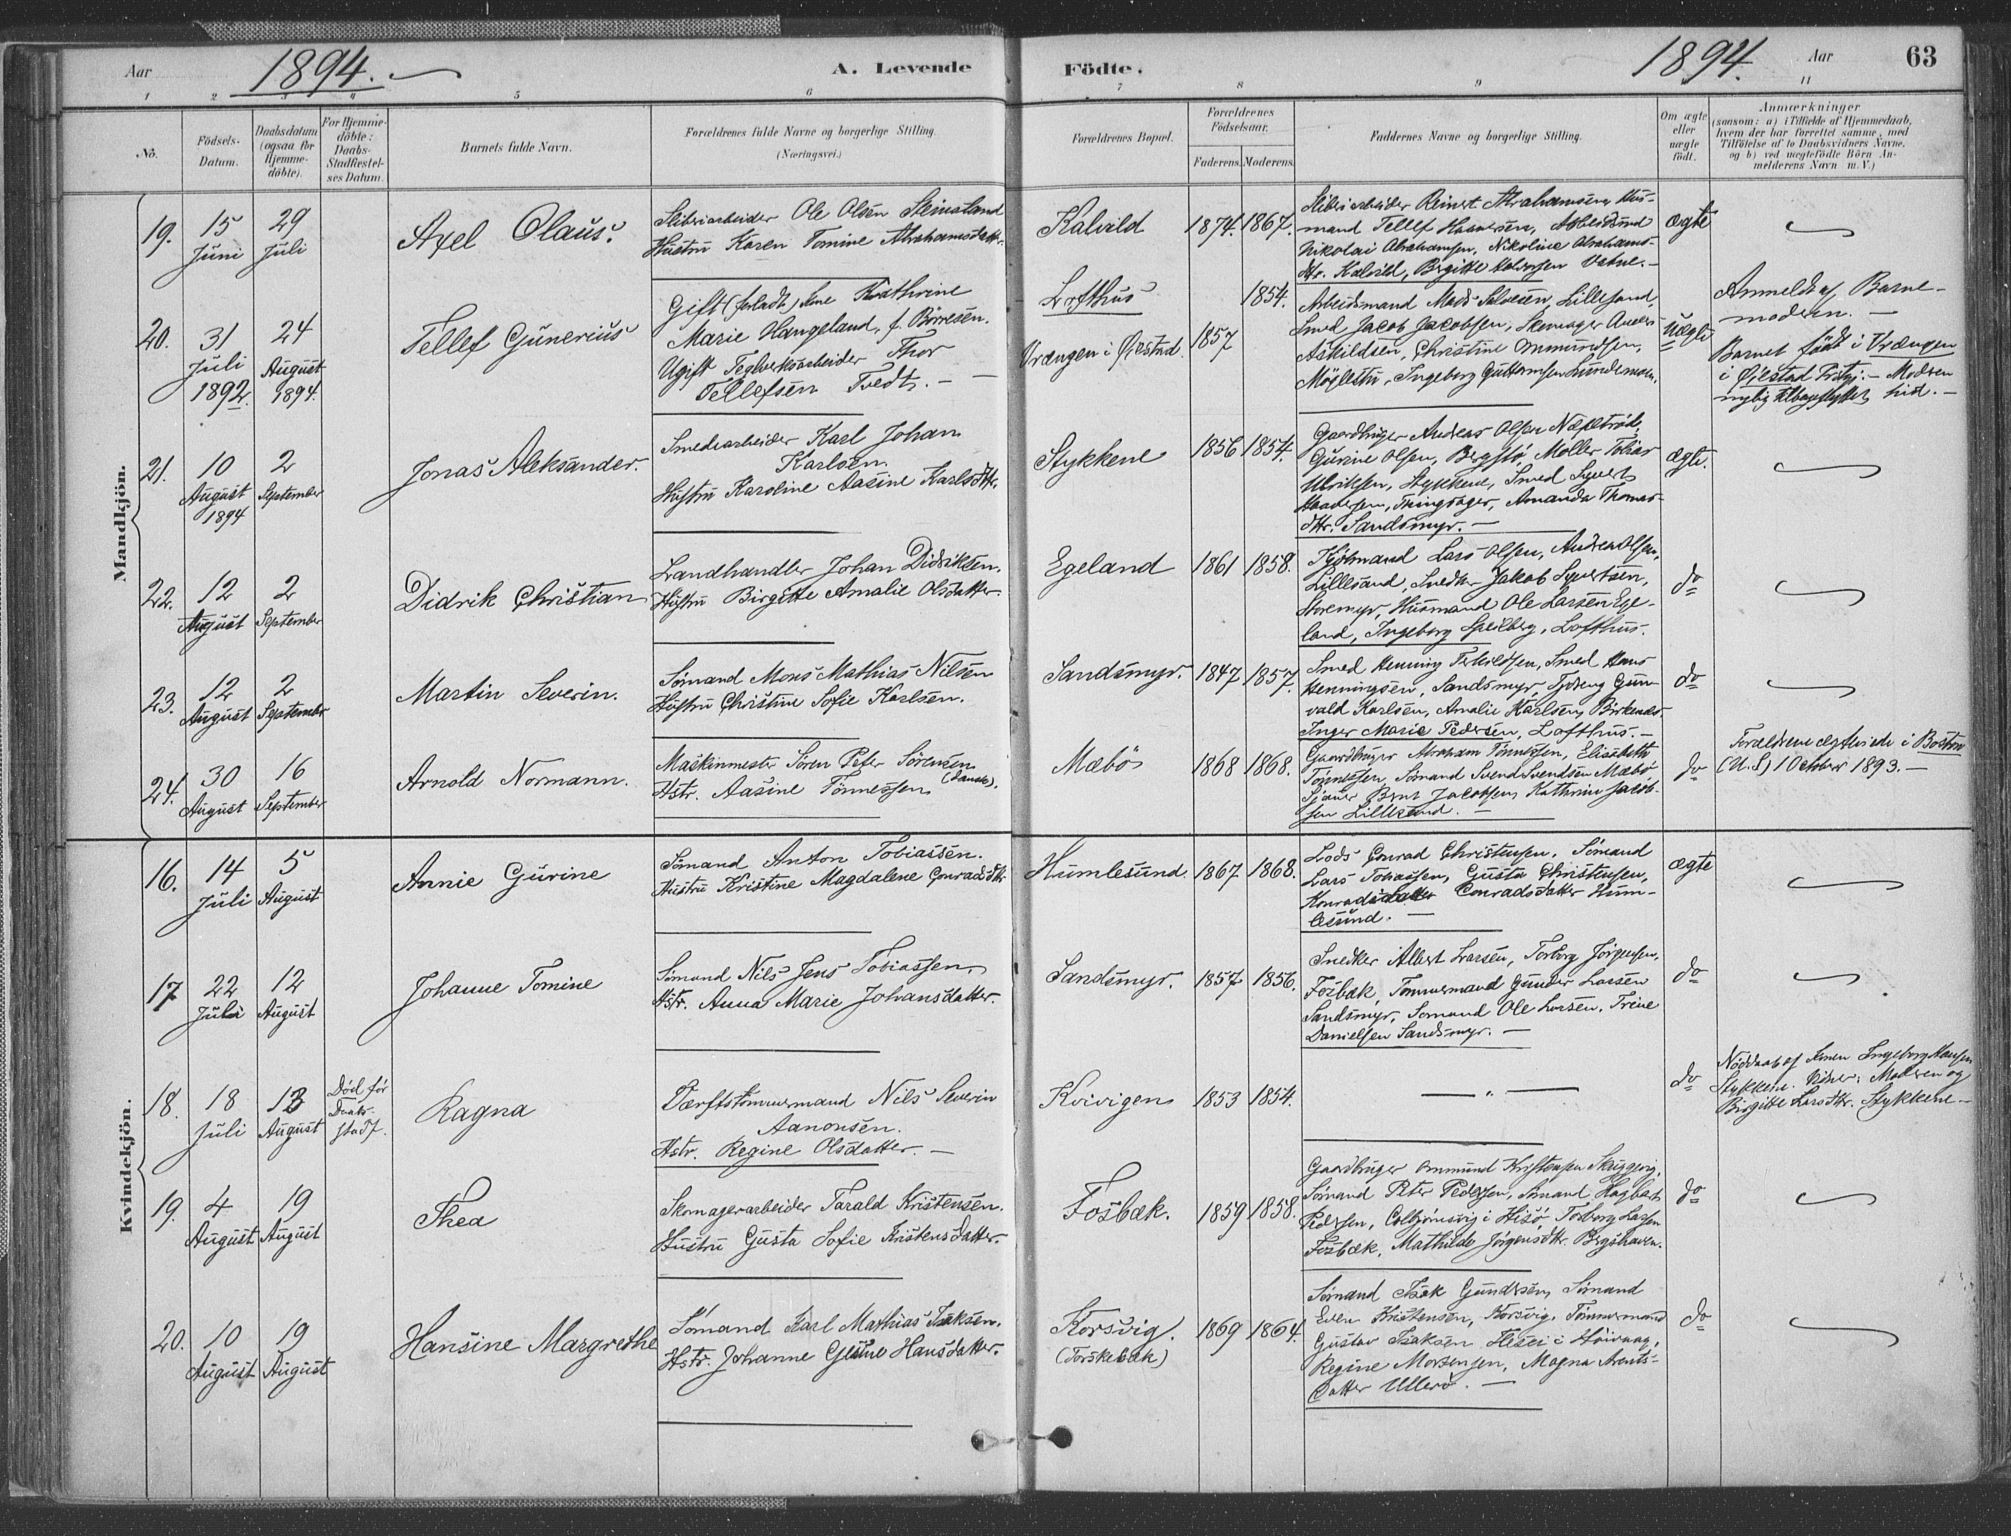 Aar 1894. A. Levende Födte. 1894. Aar 63
1 2 3 4 5 6 7 8 9 11
No. Födsels-Datum. Daabsdatum (ogsaa for Hjemme-döbte). For Hjemme-döbte: Daabs-Stadfæstel-ses Datum. Barnets fulde Navn. Forældrenes fulde Navne og borgerlige Stilling. (Næringsvei.) Forældrenes Bopæl. Forældrenes Födselsaar. Faderens. Moderens. Faddernes Navne og borgerlige Stilling. Om ægte eller uægte födt. Anmærkninger (saasom: a) i Tilfælde af Hjemmedaab, hvem der har forrettet samme, med Tilföielse af to Daabsvidners Navne, og b) ved uægtefödte Börn Anmelderens Navn m. V.)
Mandkjön.
19. 15 Juni 29 Juli
Axel Olaus.
Sliberiarbeider Ole Olsen Steinsland
Hustru Karen Tomine Abrahamsdatter.
Kalvild 1874. 1867.
Sliberiarbeider Reinert Abrahamsen, Hus-
mand Tellef Halvorsen, Arbeidsmd
Nikolai Abrahamsen, Nikoline Abrahams-
dtr. Kalvild, Birgitte Halvorsen Vatne.
ægte
20. 31 Juli 1892. 24 August 1894.
Tellef Gunerius
Gift (forladt) Kone Kathrine
Marie Haugeland, f. Börresen.
Ugift Teglverksarbeider Thor
Tellefsen Tvedt.
Lofthus 1854.
Vrængen i Öiestad. 1857
Arbeidsmand Mads Salvesen, Lillesand,
Smed Jacob Jacobsen, Skomager Anders
Askildsen, Christine Ommundsen,
Möglestu, Ingeborg Guttormsen Lundemoen.
Uægte
Anmeldt af Barne-
moderen.
Barnet födt i Vrængen
i Öiestad Prstgj. Modren
nylig tilbageflyttet hid.
21. 10 August 1894 2 September
Jonas Aleksander.
Smedearbeider Karl Johan
Karlsen
Hustru Karoline Aasine Karlsdtr.
Stykkene 1856 1854.
Gaardbruger Andreas Olsen
Gurine Olsen, Bergstö, Möller Tobias
Ulriksen, Stykkene, Smed Syvert
Tingsager, Amanda Thomas-
dtr. Sandsmyr.
ægte.
22. 12 August 2 September
Didrik Christian
Landhandler Johan Didriksen.
Hustru Birgitte Amalie Olsdatter.
Egeland 1861 1858.
Lars Olsen, Andrea Olsen,
Lillesand, Snedker Jakob Syvertsen,
Storemyr, Husmand Ole Larsen Ege-
land, Ingeborg Lofthus.
do
23. 12 August 2 September
Martin Severin.
Sömand Mons Mathias Nilsen
Hustru Christine Sofie Karlsen.
Sandsmyr. 1847 1857.
Smed Henning Terkildsen, Smed Hans
Henningsen, Sandsmyr, Tjdreng Gun-
vald Karlsen, Amalie Karlsen,
Inger Marie Pedersen, Lofthus.
do
24. 30 August 16 September
Arnold Normann.
Maskinmester Sören Peter Sörensen
Hstr. Aasine Tönnessen (Dansk).
Mæbö 1868 1868.
Gaardbruger Abraham Tönnessen, Elisabeth
Tönnessen, Sömand Svend Svendsen Mæbö
Sjauer Bernt Jacobsen, Kathrine Jakob-
sen Lillesand.
do
Forældrene ægteviede i Boston
(U.S) 1 October 1893.
Kvindekjön.
16. 14 Juli 5 August
Annie Gurine
Sömand Anton Tobiassen.
Hustru Kristine Magdalene Conradsdtr
Humlesund. 1867 1868.
Lods Conrad Christensen, Sömand
Lars Tobiassen, Gusta Christensen,
Conradsdatter Hum-
lesund.
ægte
17 22 Juli 12 August
Johanne Tomine
Sömand Nils Jens Tobiassen,
Hstr. Anna Marie Johansdatter.
Sandsmyr. 1857 1856.
Snedker Albert Larsen, Torborg Jörgensen,
Fosbæk, Tömmermand Gunder Larsen
Sandsmyr, Sömand Ole Larsen, Trine
Danielsen Sandsmyr.
do
18. 18 Juli 13 August Död för Daabs-stadf.
Ragna
Værftstömmermand Nils Severin
Aanonsen.
Hstr. Regine Olsdatter.
Kvivigen 1853 1854.
"
do
Nöddaab af Konen Ingeborg Hansen
Stykkene. Vidner: Moderen og
Birgitte Larsdtr. Stykkene
19. 4 August 19 August
Thea
Skomagerarbeider Tarald Kristensen.
Hustru Gusta Sofie Kristensdatter.
Fosbæk. 1859 1858.
Gaardbruger Ommund Kristensen
Sömand Peter Pedersen, Sömand Hagbart
Pedersen, Colbjörnsvig i Hisö, Torborg Larsen
Fosbæk, Mathilde Jörgensdtr. Bergshaven.
do
20. 10 August 19 August
Hansine Margrethe
Sömand Karl Mathias Isaksen.
Hstr. Johanne Gesine Hansdatter.
Korsvig. 1869 1864.
(Torskebæk)
Sömand Isak Gundersen, Sömand
Even Kristensen, Korsvig, Tömmermand
Gustav Isaksen i Höivaag,
Regine Mortensen, Magna Arents-
datter Ulleröe.
do